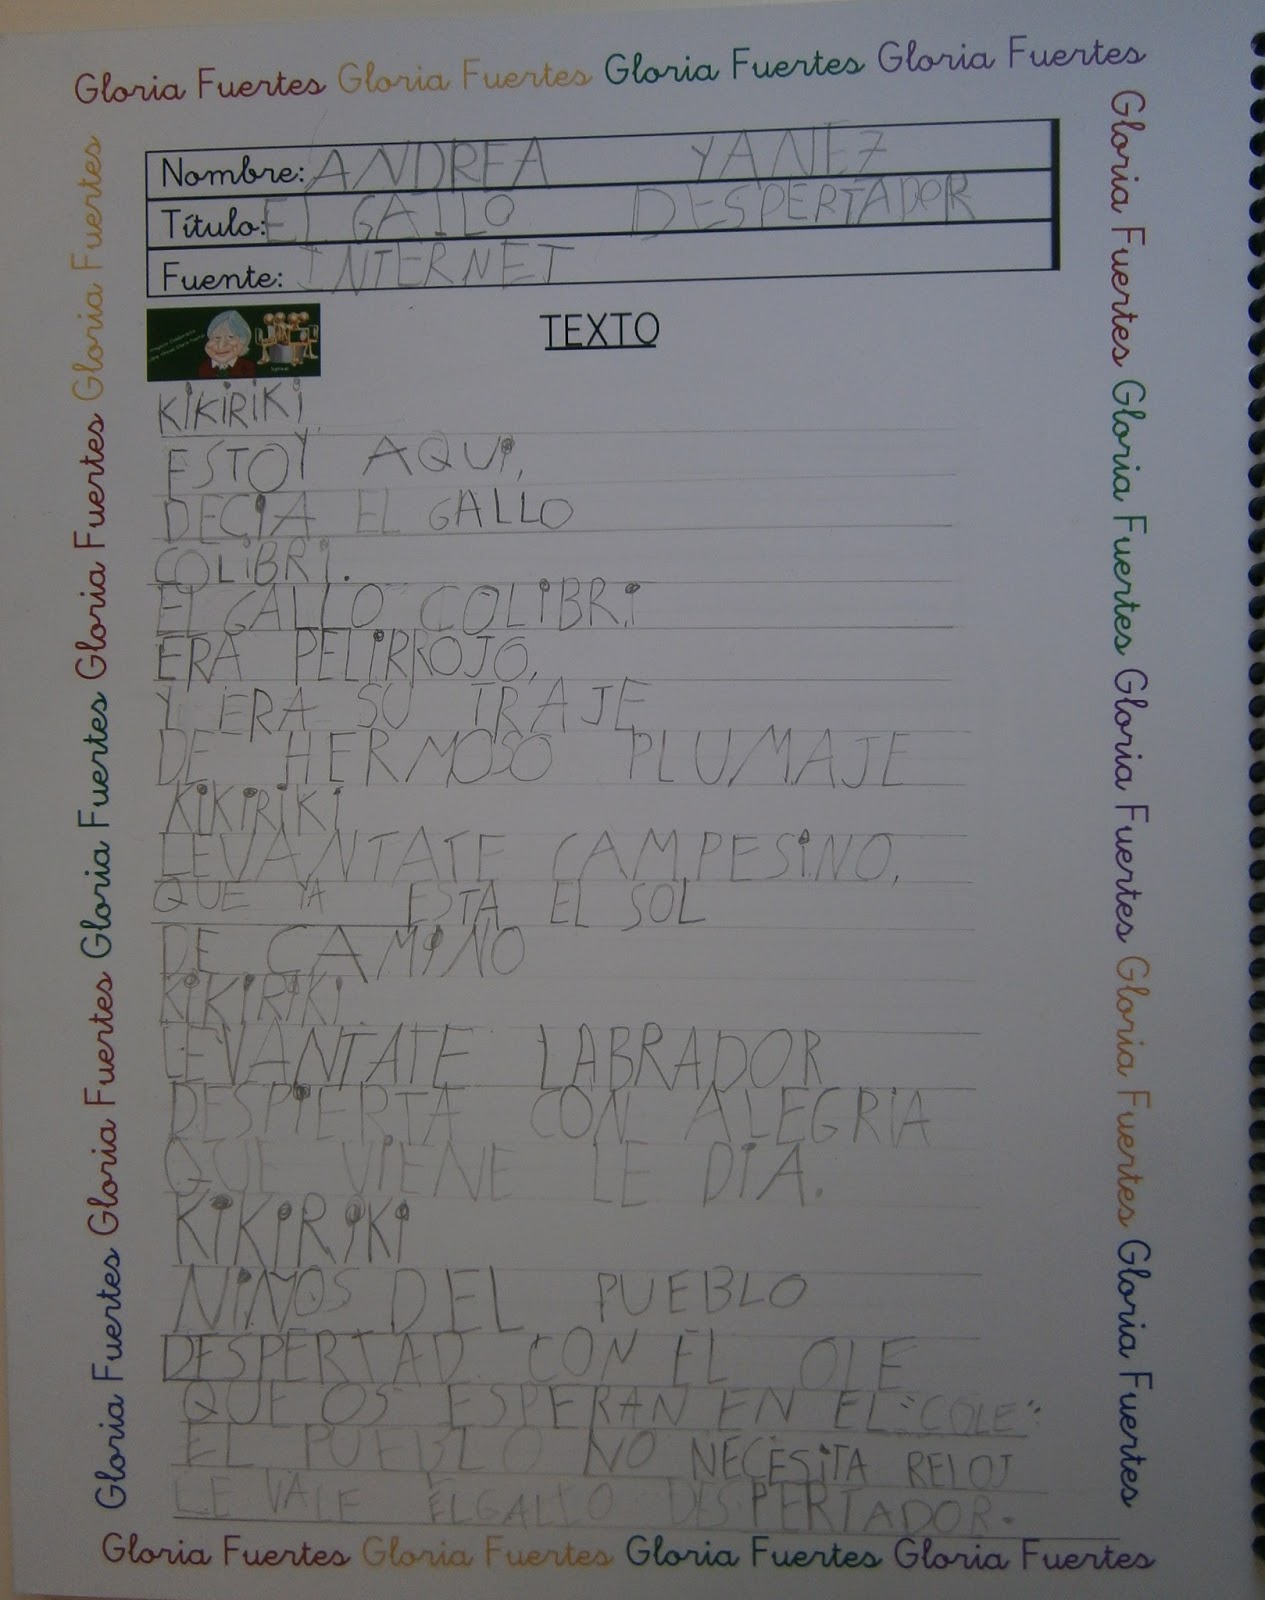 Gloria Fuertes Gloria Fuertes Gloria Fuertes Gloria Fuertes
Nombre: ANDREA YANEZ
Título: EL GALLO DESPERTADOR
Fuente: INTERNET
TEXTO
KIKIRIKI
ESTOY AQUI,
DECIA EL GALLO
COLIBRI.
EL GALLO COLIBRI
ERA PELIRROJO,
Y ERA SU TRAJE
DE HERMOSO PLUMAJE
KIKIRIKI
LEVANTATE CAMPESINO,
QUE YA ESTA EL SOL
DE CAMINO
KIKIRIKI
LEVANTATE LABRADOR
DESPIERTA CON ALEGRIA
QUE VIENE LE DIA.
KIKIRIKI
NIÑOS DEL PUEBLO
DESPERTAD CON EL OLE
QUE OS ESPERAN EN EL "COLE"
EL PUEBLO NO NECESITA RELOJ
LE VALE EL GALLO DESPERTADOR.
Gloria Fuertes Gloria Fuertes Gloria Fuertes Gloria Fuertes
Gloria Fuertes Gloria Fuertes Gloria Fuertes Gloria Fuertes Gloria Fuertes
Gloria Fuertes Gloria Fuertes Gloria Fuertes Gloria Fuertes Gloria Fuertes